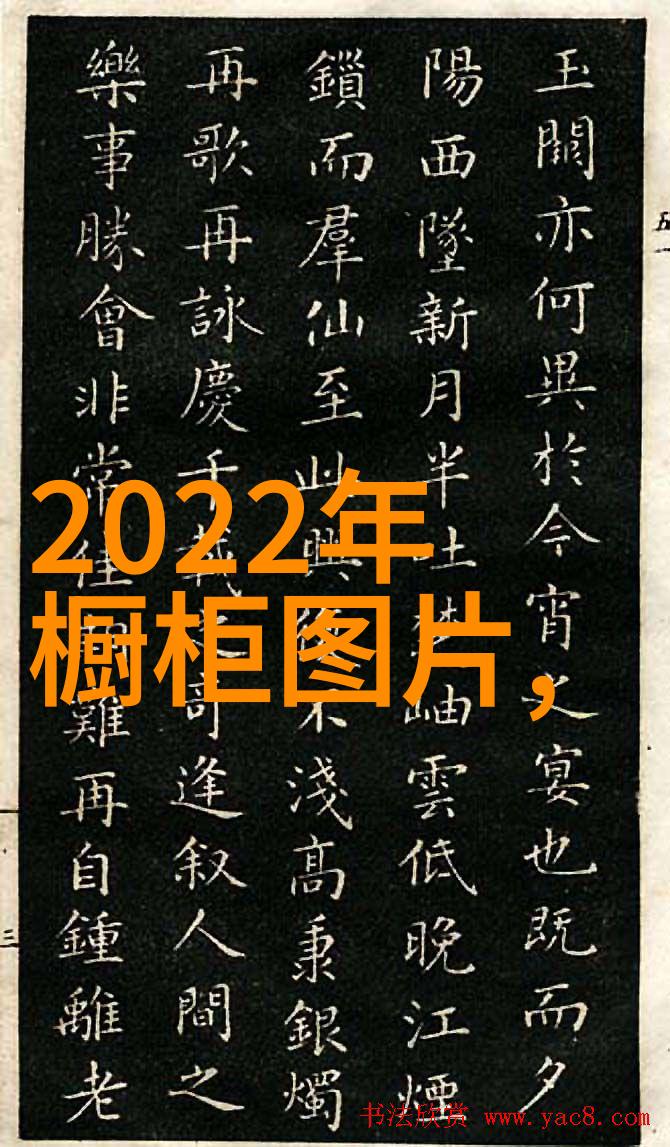 玉闕亦何異於今宵之宴也既而夕
陽西墜新月半吐楚岫雲低晚江煙
鎖而羣仙至此興復不淺高秉銀燭
再歌再詠慶千載之奇逢叙人間之
樂事勝會非常佳期難再自鍾離老
2022年
橱柜图片,
五
三
书法欣赏 www.yac8.com